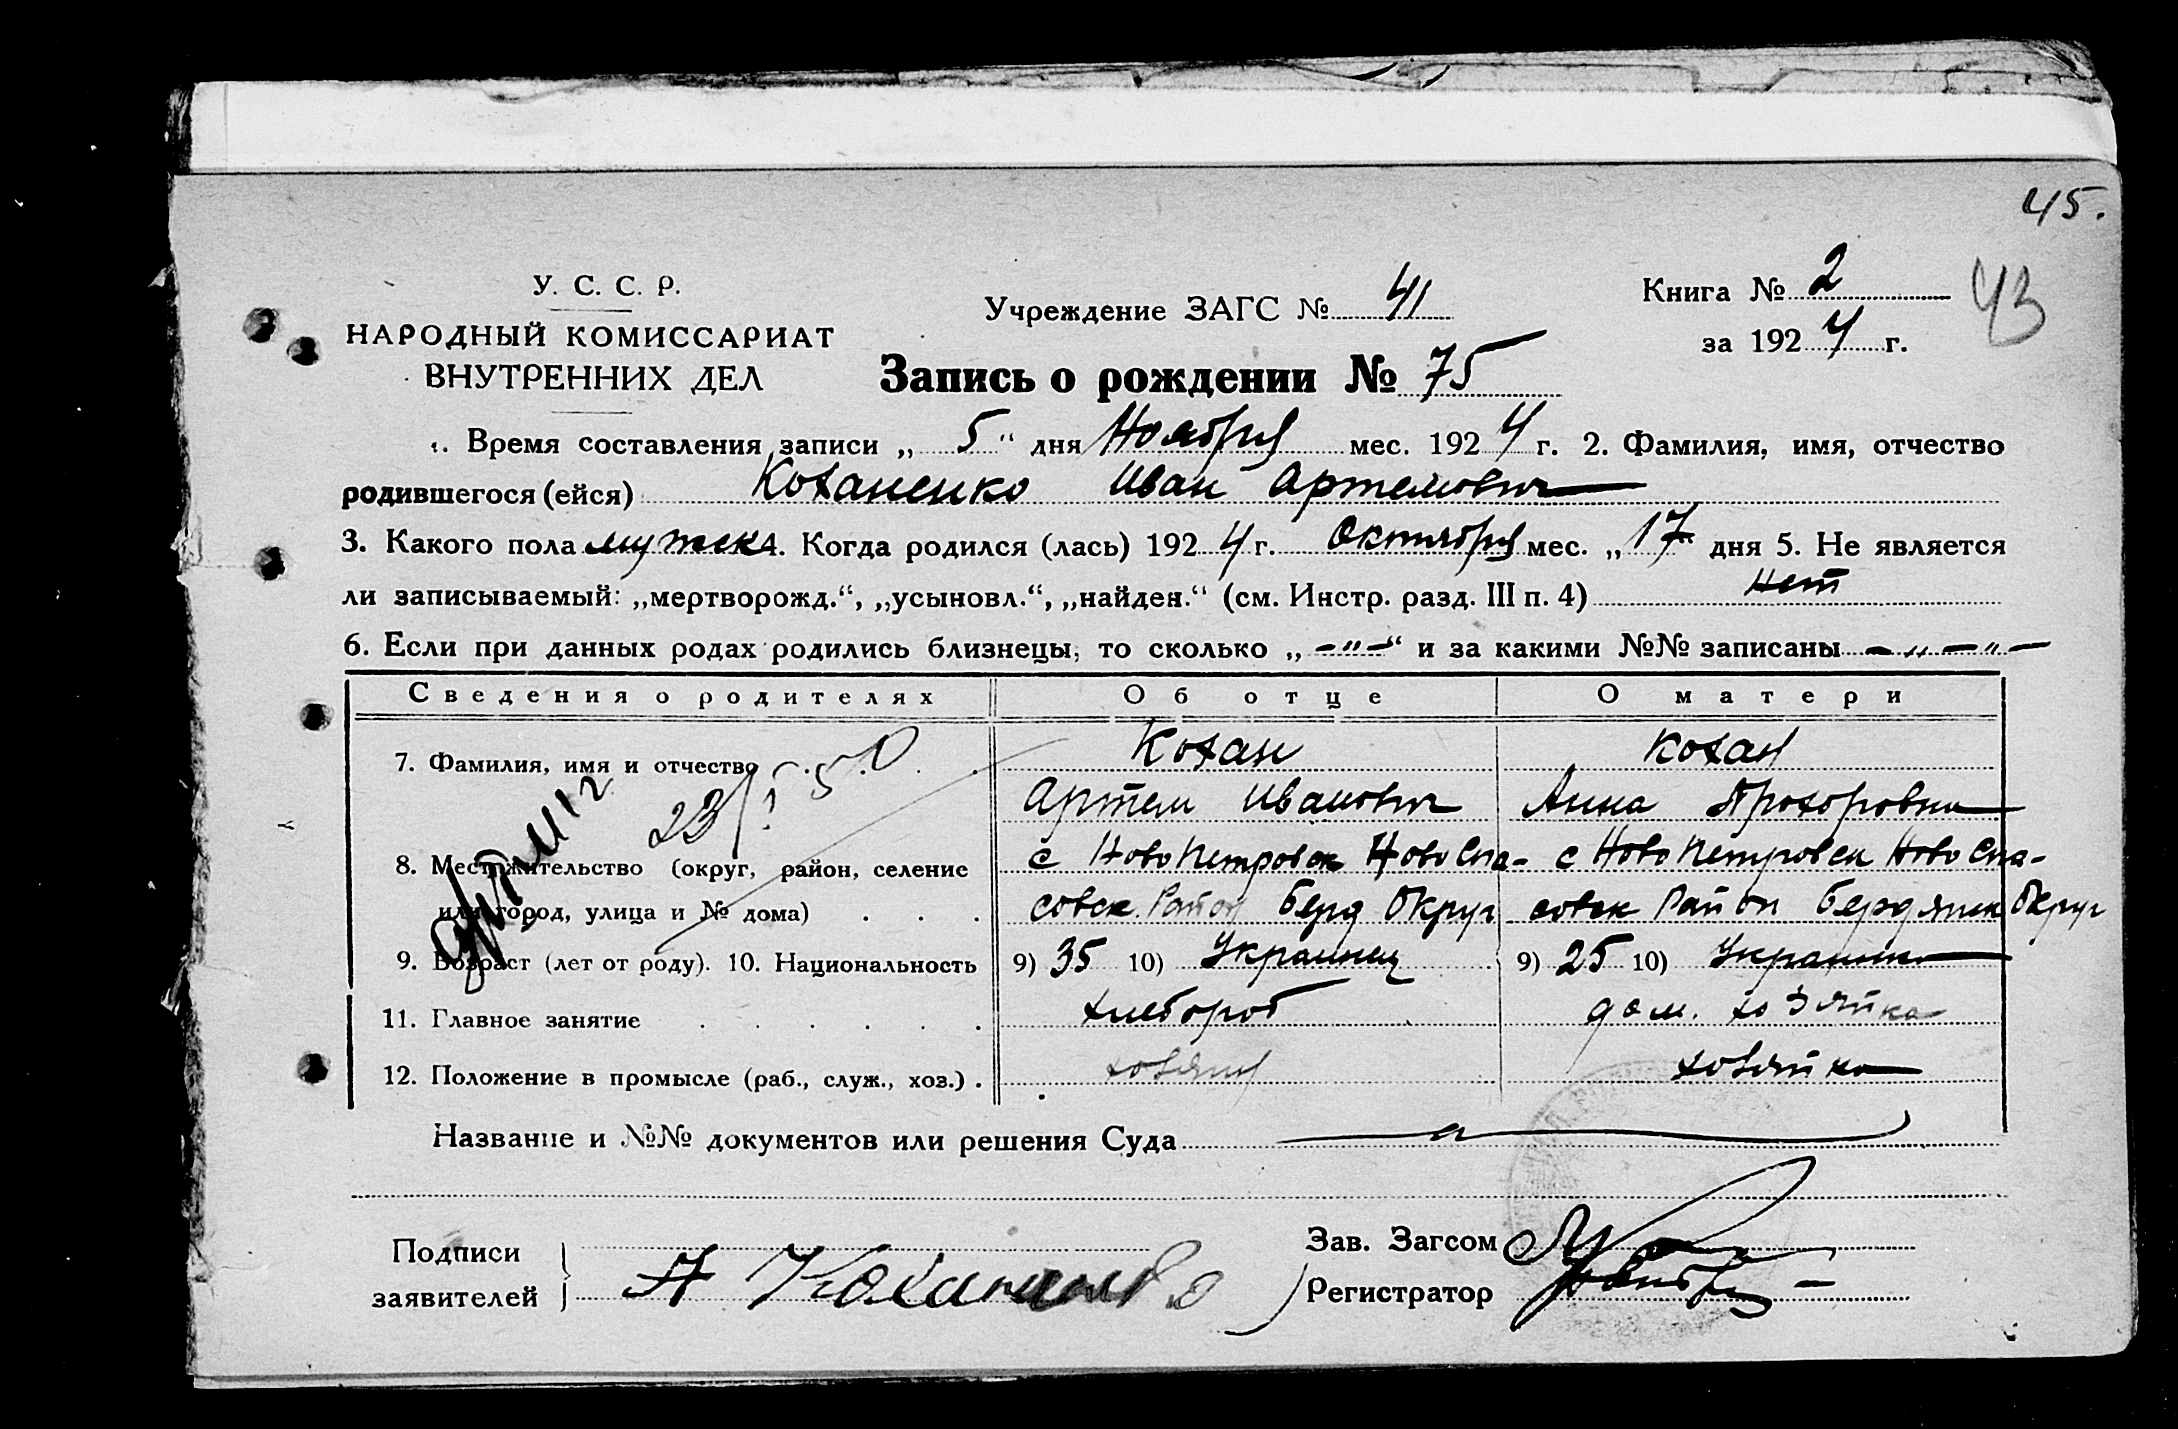 45.
У. С. С. Р.
НАРОДНЫЙ КОМИССАРИАТ
ВНУТРЕННИХ ДЕЛ
Учреждение ЗАГС № 41
Книга № 2
за 1924 г.
43
Запись о рождении № 75
1. Время составления записи „ 5 “ дня Ноября мес. 1924 г. 2. Фамилия, имя, отчество
родившегося (ейся) Коханенко Иван Артемович
3. Какого пола мужск 4. Когда родился (лась) 1924 г. Октября мес. „ 17 дня 5. Не является
ли записываемый: „мертворожд.“, „усыновл.“, „найден.“ (см. Инстр. разд. III п. 4) нет
6. Если при данных родах родились близнецы, то сколько „ –"– “ и за какими №№ записаны –"–"–
Сведения о родителях Об отце О матери
7. Фамилия, имя и отчество Кохан Кохан
Артем Иванович Анна Прохоровна
23/I 50
8. Местожительство (округ, район, селение с НовоПетровск НовоСпа- с НовоПетровск НовоСпа-
или город, улица и № дома) совск Район Берд Округ совск Район Бердянск Округ
9. Возраст (лет от роду). 10. Национальность 9) 35 10) Украинец 9) 25 10) Украинка
11. Главное занятие хлебороб дом. хозяйка
12. Положение в промысле (раб., служ., хоз.) . хозяин хозяйка
Название и №№ документов или решения Суда
Подписи
заявителей
А Коханенко
Зав. Загсом
Регистратор